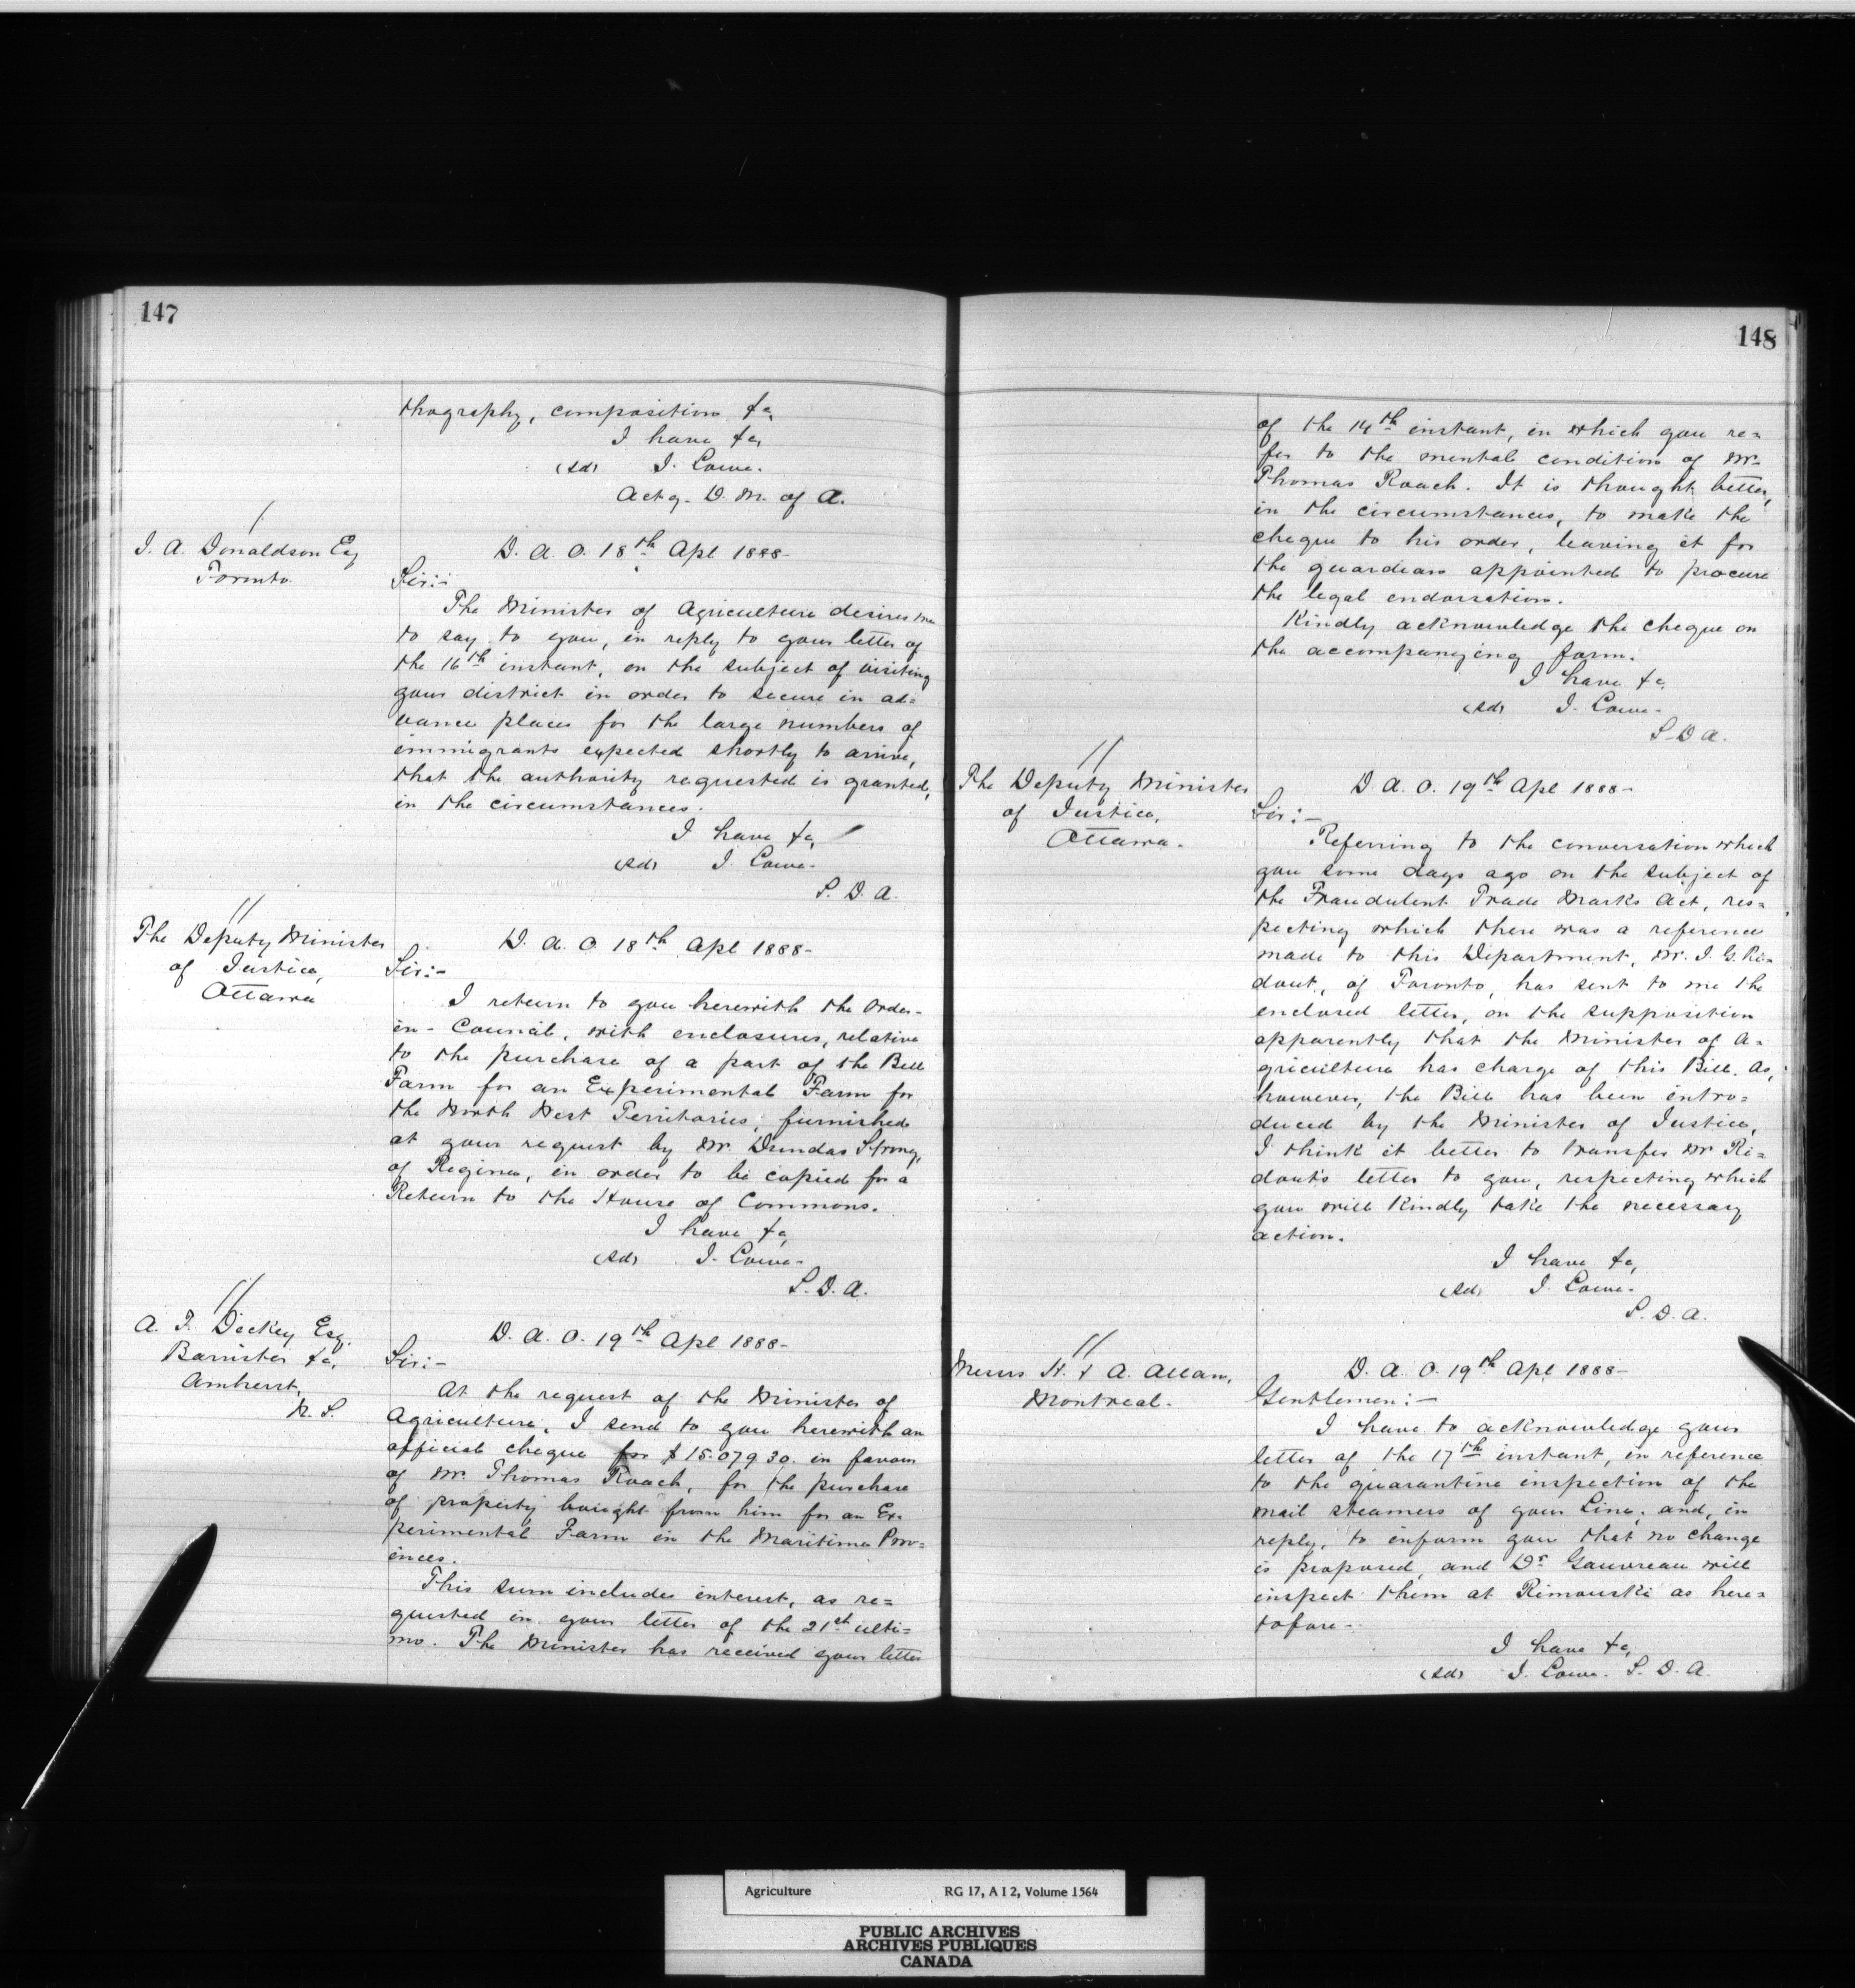 147
thography, composition &c,
I have &c,
(sd) J. Lowe.
Actg. D. M. of A.
/
J. A. Donaldson Esq
Toronto.
D. A. O. 18th Apl 1888-
Sir:-
The Minister of Agriculture desires me
to say to you, in reply to your letter of
the 16th instant, on the subject of visiting
your district in order to secure in ad=
vance places for the large numbers of
immigrants expected shortly to arrive,
that the authority requested is granted,
in the circumstances.
I have &c,
(sd) J. Lowe-
S. D. A.
//
The Deputy Minister
of Justice,
Ottawa
D. A. O. 18th Apl 1888-
Sir:-
I return to you herewith the Order-
in-Council, with enclosures, relative
to the purchase of a part of the Bell
Farm for an Experimental Farm for
the North West Territories, furnished
at your request by Mr. Dundas Strong,
of Regina, in order to be copied for a
Return to the House of Commons.
I have &c,
(sd) J. Lowe-
S. D. A.
//
A. F. Dickey Esq.
Barrister &c,
Amherst,
N. S.
D. A. O. 19th Apl 1888-
Sir:-
At the request of the Minister of
Agriculture, I send to you herewith an
official cheque for $15.079 30. in favour
of Mr. Thomas Roach, for the purchase
of property bought from him for an Ex-
perimental Farm in the Maritime Prov=
inces.
This sum includes interest, as re=
quested in your letter of the 21st ulti=
mo. The Minister has received your letter
148
of the 14th instant, in which you re=
fer to the mental condition of Mr.
Thomas Roach. It is thought better,
in the circumstances, to make the
cheque to his order, leaving it for
the guardian appointed to procure
the legal endorsation.
Kindly acknowledge the cheque on
the accompanying form.
I have &c,
(sd) J. Lowe-
S. D A.
//
The Deputy Minister
of Justice,
Ottawa.
D. A. O. 19th Apl 1888-
Sir:-
Referring to the conversation which
you some days ago on the subject of
the Fraudulent Trade Marks Act, res=
pecting which there was a reference
made to this Department, Mr. J. G. Ri=
dout, of Toronto, has sent to me the
enclosed letter, on the supposition
apparently that the Minister of A=
griculture has charge of this Bill. As,
however, the Bill has been intro=
duced by the Minister of Justice,
I think it better to transfer Mr Ri=
dout's letter to you, respecting which
you will kindly take the necessary
action.
I have &c,
(sd) J. Lowe-
S. D. A.
//
Messrs H. & A. Allan,
Montreal.
D. A. O. 19th Apl 1888-
Gentlemen:-
I have to acknowledge your
letter of the 17th instant, in reference
to the quarantine inspection of the
mail steamers of your Line; and, in
reply, to inform you that no change
is proposed, and Dr Gauvreau will
inspect them at Rimouski as here=
tofore-
I have &c,
(sd) J. Lowe. S. D. A.
Agriculture RG 17, A I 2, Volume 1564
PUBLIC ARCHIVES
ARCHIVES PUBLIQUES
CANADA